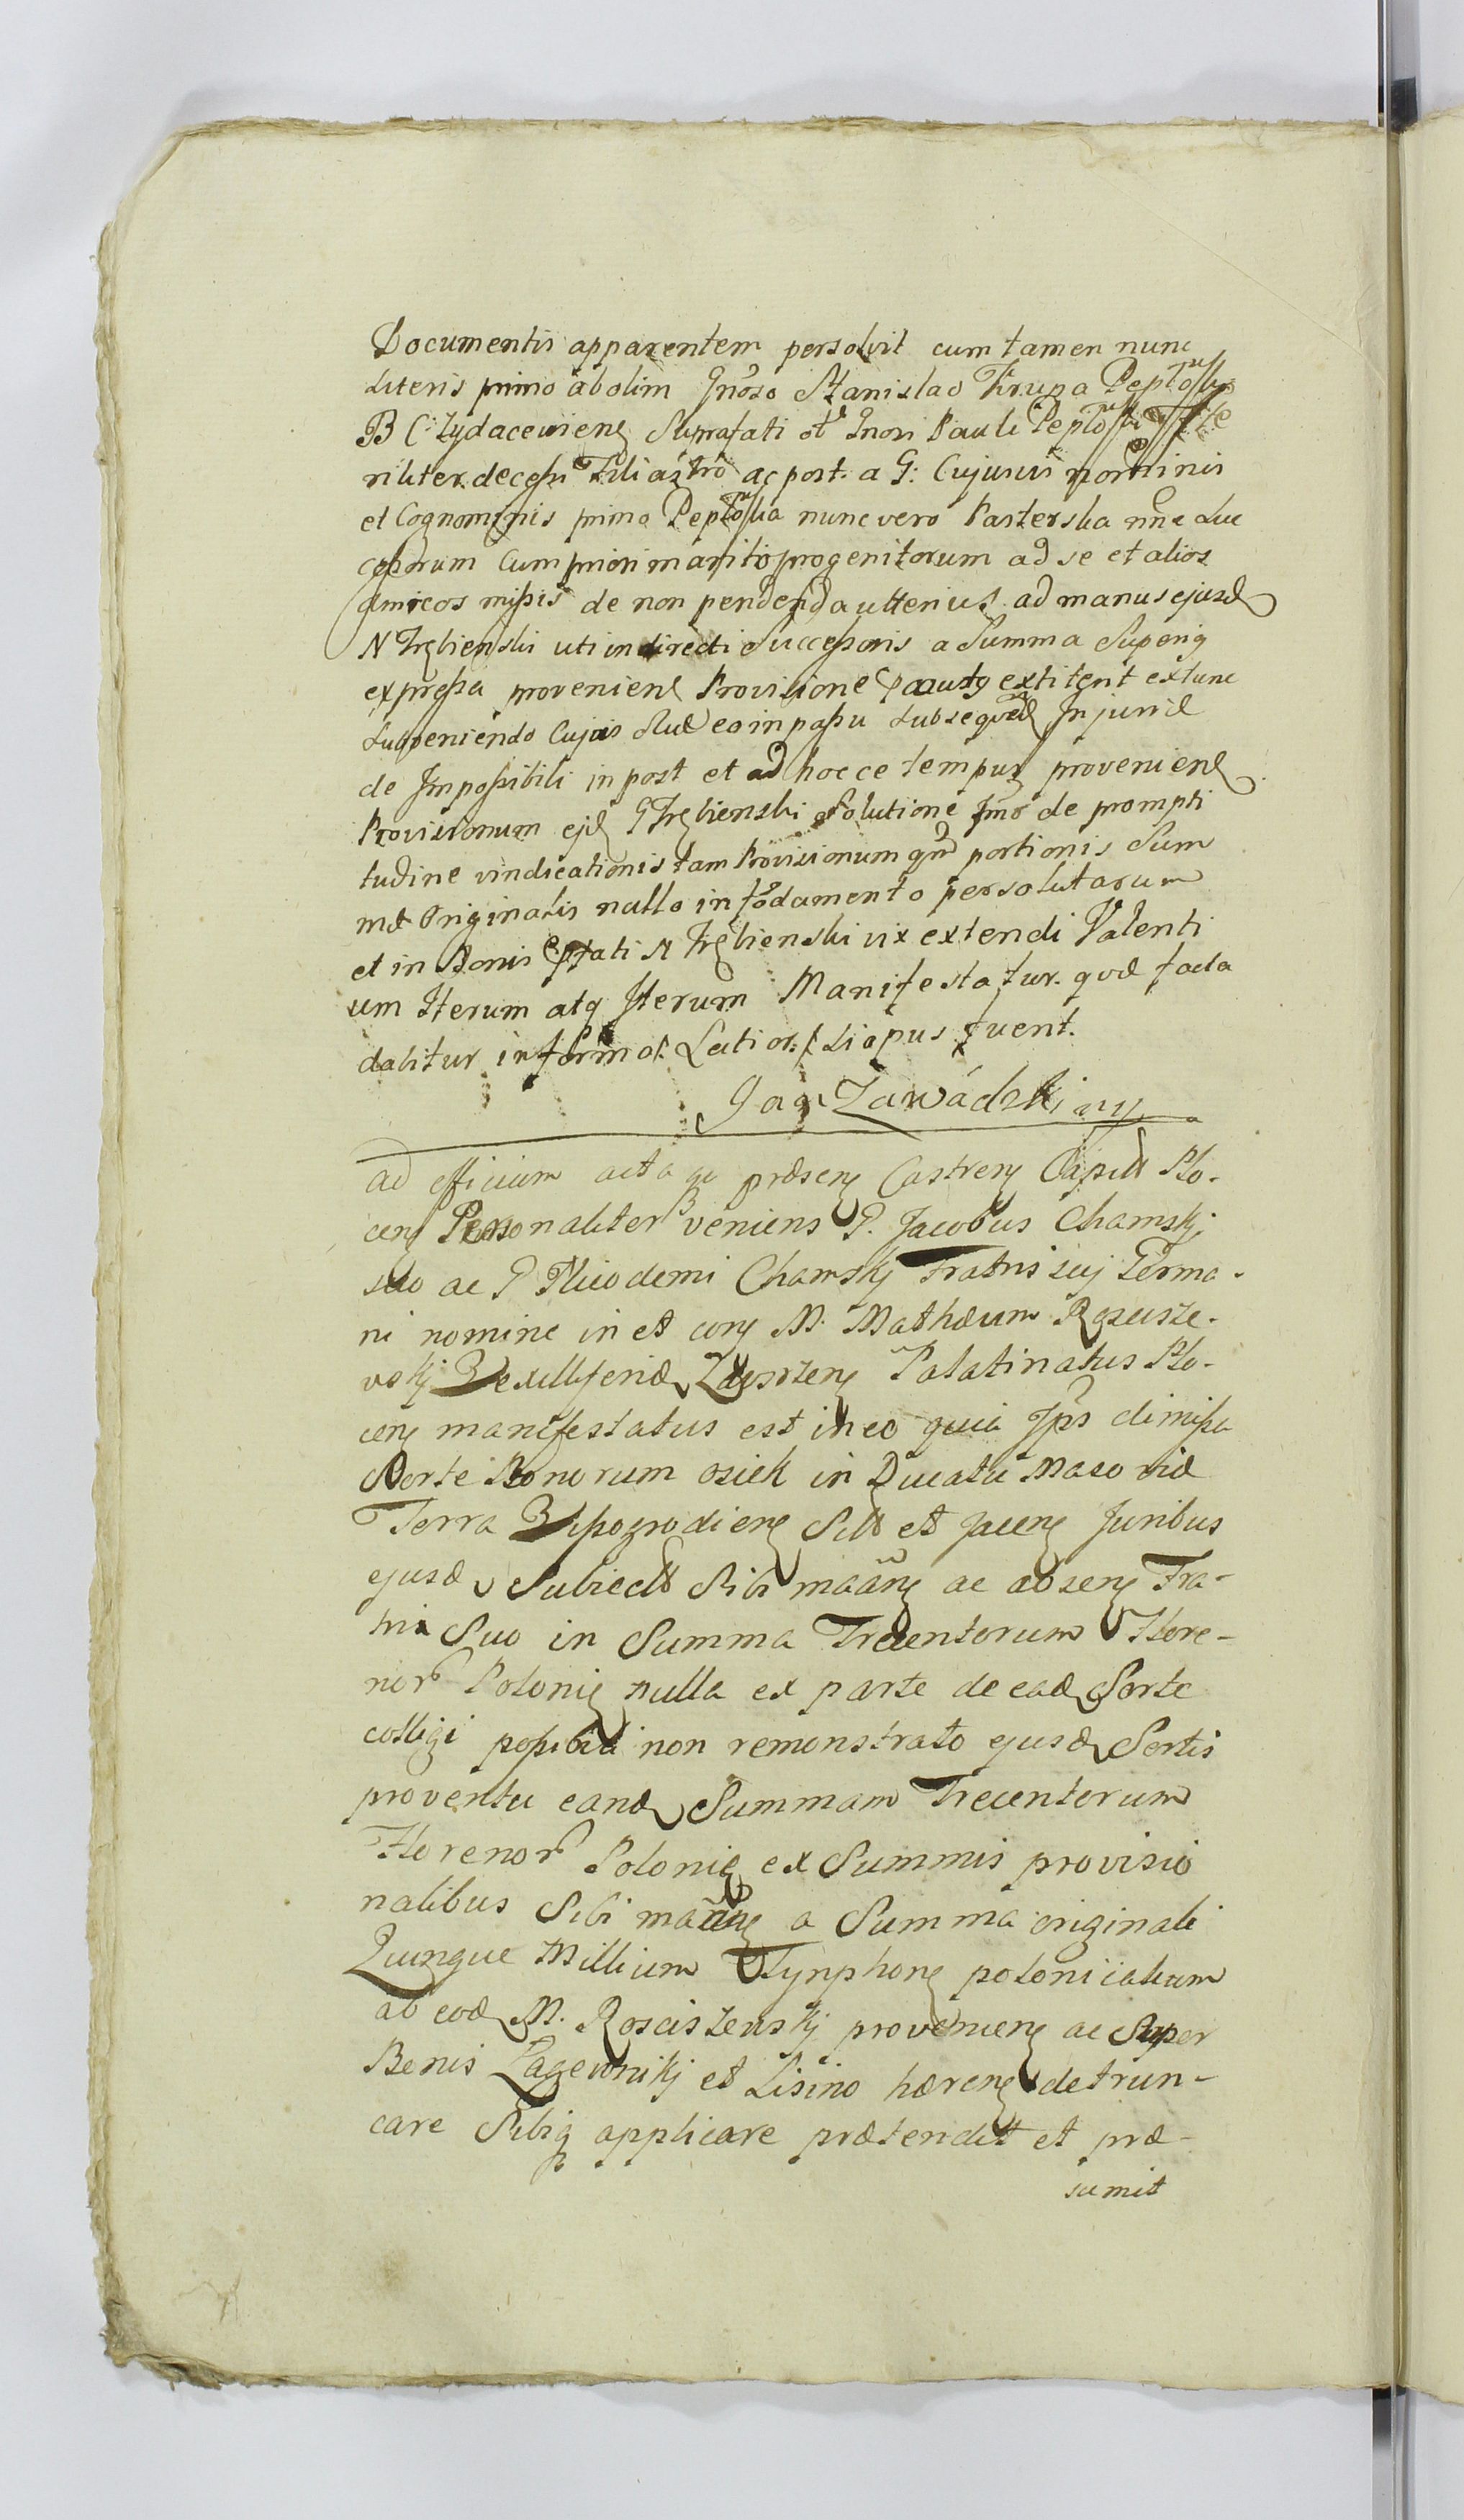 Documentis apparentem persolvit cum tamen nunc
Literis primo ab olim Gnoso Stanislao Krupa
B C: Zydaceviens Suprafati ol Gnosi Pauli
riliter decessi Filiastro ac post. a G: Cujusvis nominis
et Cognominis primo nunc vero Pasterska nne Suc
cessorum cum priori marito progenitorum ad se et alios
amicos missis de non pendenda ulterius ad manus ejusd
N Trębienski uti indirecti Successoris a Summa Superiq
expressa provenien Provisione extitent extunc
Subveniendo Cujus eo in passu subseqved Injuriæ
de Impossibili in post et ad hocce tempus provenien
Provisionum ejd G Trębienski Solutione Imo de prompti
tudine vindicationis tam Provisionum qm portionis Sum
mæ Originalis nullo in fodamento persolutarum
et in Bonis N Trębienski vix extendi Valenti
um Iterum atq Iterum Manifestatur. qvæ facta
dabitur in forma Latior. si opus fuent.
Jan Zawádzki mp
ad officium acta q præsen Castren Capitt Plo-
cen Personaliter veniens G. Jacobus Chamskj
suo ac G Nicodemi Chamskj Fratris suj Germa-
ni nomine in et con M. Mathæum Roscisze-
vskj Vexilliferid Palatinatus Plo-
cen manifestatus est in eo quia Ips dimissa
Sorte Bonorum osiek in Ducatu Masoviæ
Terra Vissogrodien Sitt et Jacen Juribus
ejusd Subiectt Sibi ac absen Fra-
tri Suo in Summa Trecentorum Flore-
nor Polonię nulla ex parte de ead Sorte
colligi possibili non remonstrato ejusd Sortis
proventu eand Summam Trecentorum
Florenor Polonię ex Summis provisio
nalibus Sibi a Summa originali
Quinque Millium Tynphon polonicalium
ab eod M. Rosciszewskj provenien ac Super
Bonis Łagewnikj et Lisino hæren detrun-
care Sibiq applicare prætendit et præ-
sumit